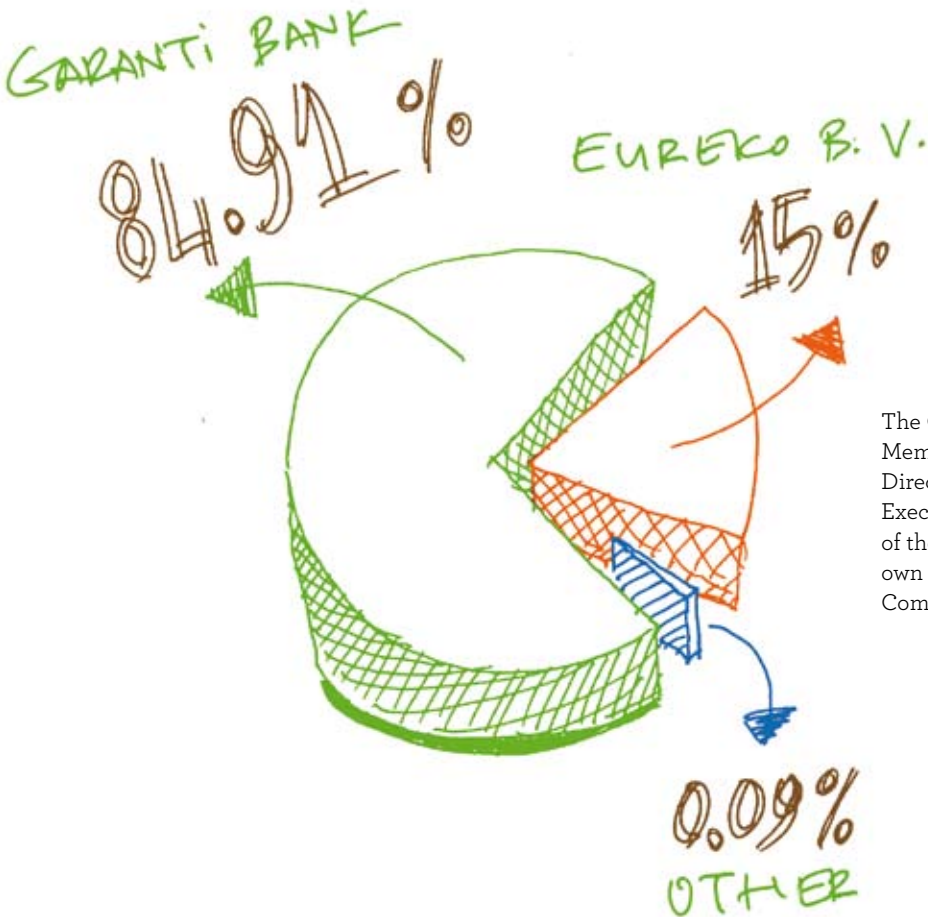 GARANTi BANK
84.91%
EUREKO B.V.
15%
The
Mem
Direc
Exec
of th
own
Com
0.09%
OTHER